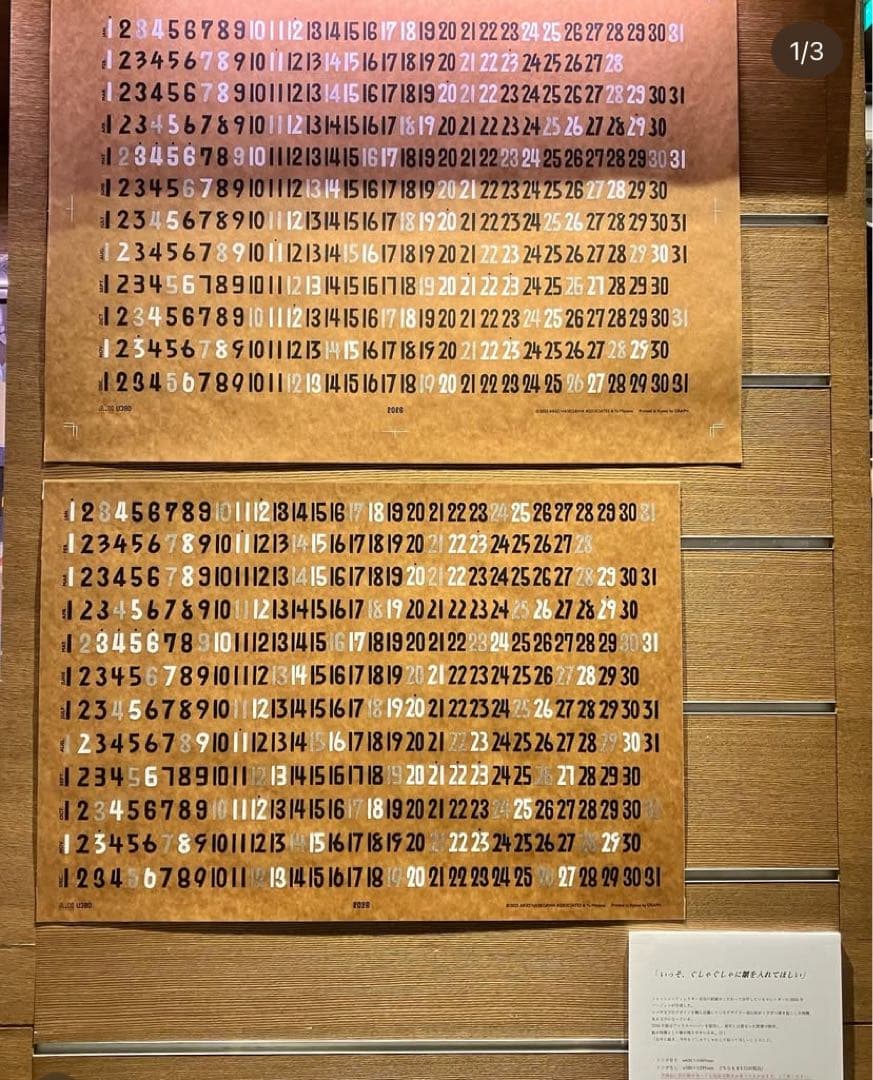 1/3
JAN. 1 2 3 4 5 6 7 8 9 10 11 12 13 14 15 16 17 18 19 20 21 22 23 24 25 26 27 28 29 30 31
FEB. 1 2 3 4 5 6 7 8 9 10 11 12 13 14 15 16 17 18 19 20 21 22 23 24 25 26 27 28
MAR. 1 2 3 4 5 6 7 8 9 10 11 12 13 14 15 16 17 18 19 20 21 22 23 24 25 26 27 28 29 30 31
APR. 1 2 3 4 5 6 7 8 9 10 11 12 13 14 15 16 17 18 19 20 21 22 23 24 25 26 27 28 29 30
MAY 1 2 3 4 5 6 7 8 9 10 11 12 13 14 15 16 17 18 19 20 21 22 23 24 25 26 27 28 29 30 31
JUNE 1 2 3 4 5 6 7 8 9 10 11 12 13 14 15 16 17 18 19 20 21 22 23 24 25 26 27 28 29 30
JULY 1 2 3 4 5 6 7 8 9 10 11 12 13 14 15 16 17 18 19 20 21 22 23 24 25 26 27 28 29 30 31
AUG. 1 2 3 4 5 6 7 8 9 10 11 12 13 14 15 16 17 18 19 20 21 22 23 24 25 26 27 28 29 30 31
SEPT. 1 2 3 4 5 6 7 8 9 10 11 12 13 14 15 16 17 18 19 20 21 22 23 24 25 26 27 28 29 30
OCT. 1 2 3 4 5 6 7 8 9 10 11 12 13 14 15 16 17 18 19 20 21 22 23 24 25 26 27 28 29 30 31
NOV. 1 2 3 4 5 6 7 8 9 10 11 12 13 14 15 16 17 18 19 20 21 22 23 24 25 26 27 28 29 30
DEC. 1 2 3 4 5 6 7 8 9 10 11 12 13 14 15 16 17 18 19 20 21 22 23 24 25 26 27 28 29 30 31
2026
Printed in Kyoto by GRAPH
JAN. 1 2 3 4 5 6 7 8 9 10 11 12 13 14 15 16 17 18 19 20 21 22 23 24 25 26 27 28 29 30 31
FEB. 1 2 3 4 5 6 7 8 9 10 11 12 13 14 15 16 17 18 19 20 21 22 23 24 25 26 27 28
MAR. 1 2 3 4 5 6 7 8 9 10 11 12 13 14 15 16 17 18 19 20 21 22 23 24 25 26 27 28 29 30 31
APR. 1 2 3 4 5 6 7 8 9 10 11 12 13 14 15 16 17 18 19 20 21 22 23 24 25 26 27 28 29 30
MAY 1 2 3 4 5 6 7 8 9 10 11 12 13 14 15 16 17 18 19 20 21 22 23 24 25 26 27 28 29 30 31
JUNE 1 2 3 4 5 6 7 8 9 10 11 12 13 14 15 16 17 18 19 20 21 22 23 24 25 26 27 28 29 30
JULY 1 2 3 4 5 6 7 8 9 10 11 12 13 14 15 16 17 18 19 20 21 22 23 24 25 26 27 28 29 30 31
AUG. 1 2 3 4 5 6 7 8 9 10 11 12 13 14 15 16 17 18 19 20 21 22 23 24 25 26 27 28 29 30 31
SEPT. 1 2 3 4 5 6 7 8 9 10 11 12 13 14 15 16 17 18 19 20 21 22 23 24 25 26 27 28 29 30
OCT. 1 2 3 4 5 6 7 8 9 10 11 12 13 14 15 16 17 18 19 20 21 22 23 24 25 26 27 28 29 30 31
NOV. 1 2 3 4 5 6 7 8 9 10 11 12 13 14 15 16 17 18 19 20 21 22 23 24 25 26 27 28 29 30
DEC. 1 2 3 4 5 6 7 8 9 10 11 12 13 14 15 16 17 18 19 20 21 22 23 24 25 26 27 28 29 30 31
2026
「いっそ、ぐしゃぐしゃに皺を入れてほしい」